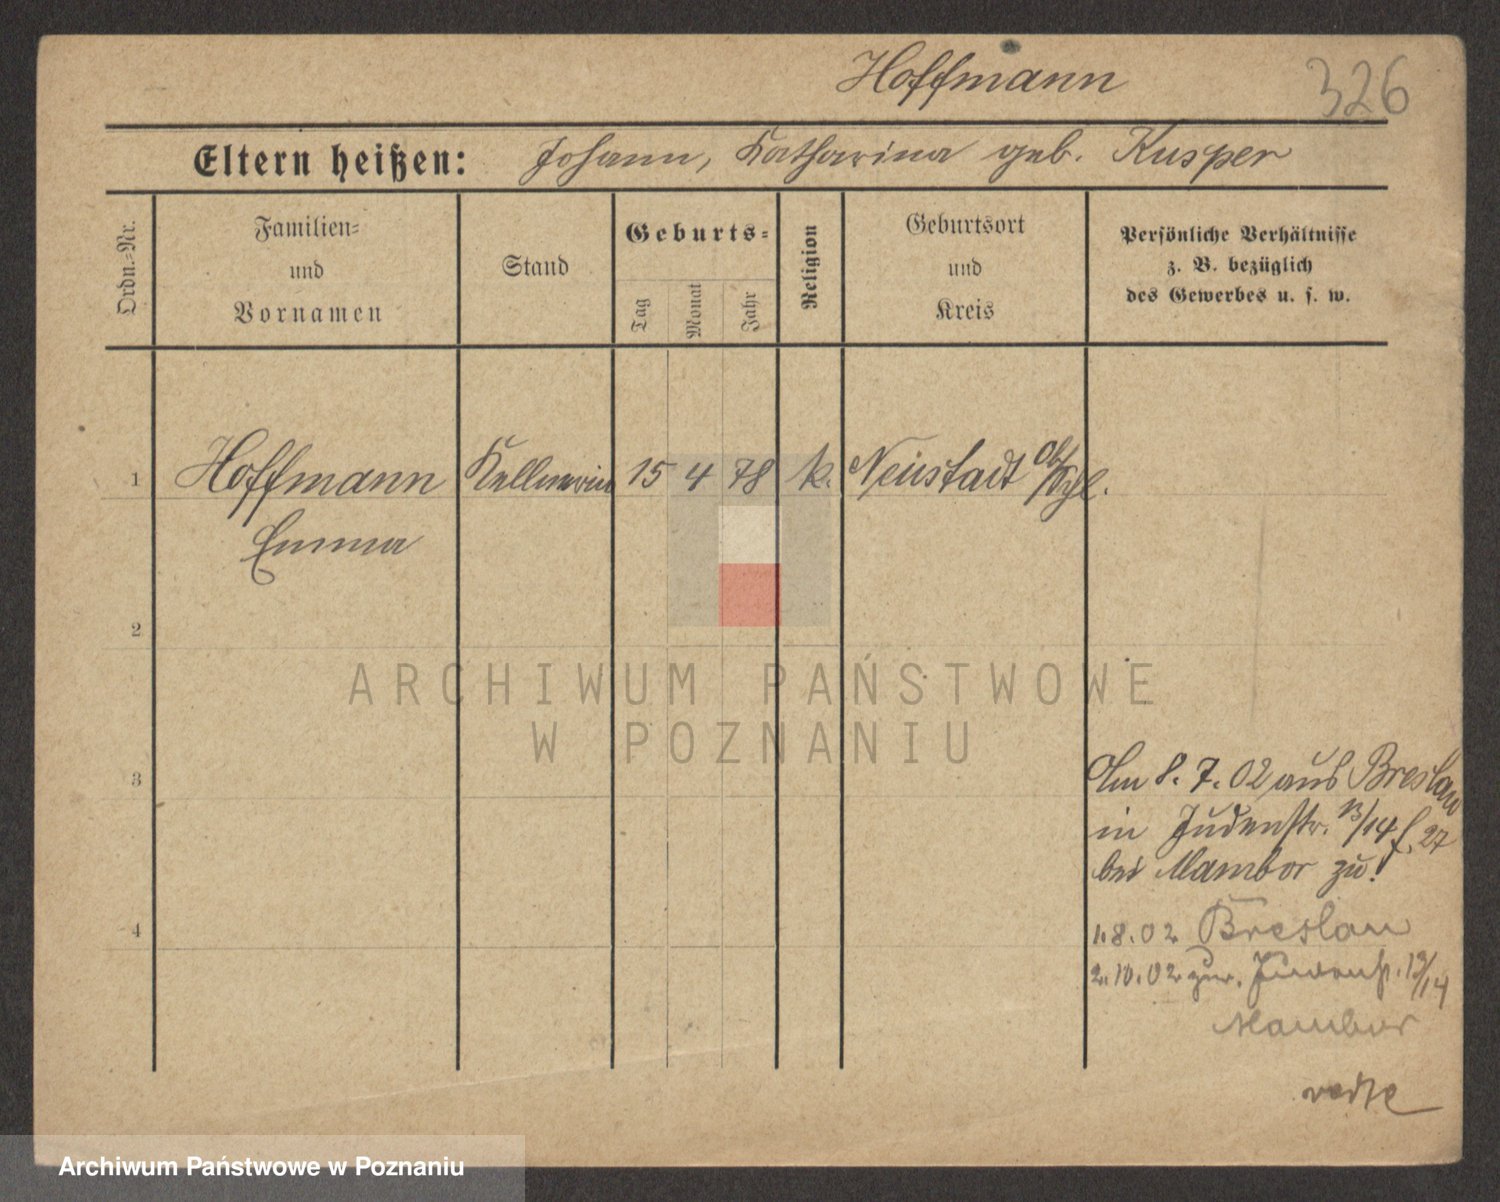 Hoffmann
326
Eltern heißen: Johann, Katharina geb. Kusper
Ordn.-Nr.
Familien-
und
Vornamen
Stand
Geburts-
Tag
Monat
Jahr
Religion
Geburtsort
und
Kreis
Persönliche Verhältnisse
z. B. bezüglich
des Gewerbes u. s. w.
1 Hoffmann Kellnerin 15 4 78 k. Neustadt
Emma
2
ARCHIWUM PAŃSTWOWE
W POZNANIU
3
Am 8. 7. 02 aus Breslau
in Judenstr. 13/14 f. 27
bei Mambor zu.
4
1.8.02 Breslau
2.10.02 zur. Judenstr. 13/14
Mambor
Archiwum Państwowe w Poznaniu